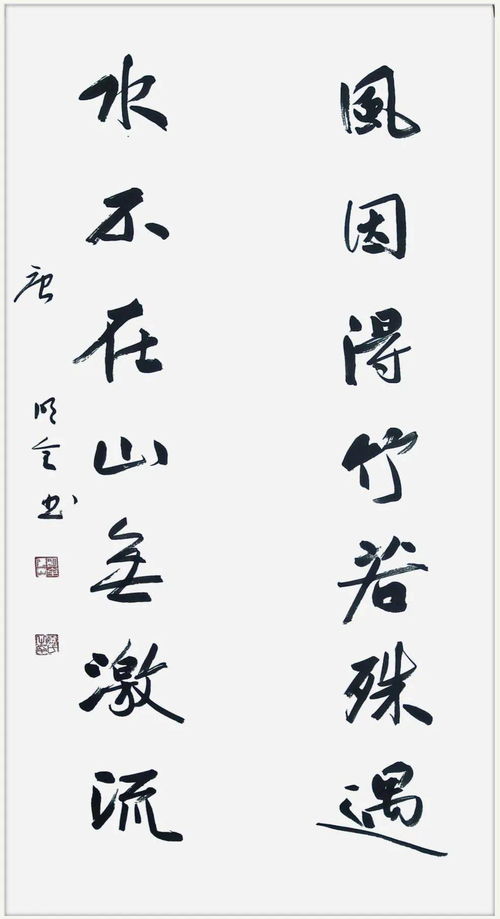 風因得竹若殊遇
水不在山無激流
唐 明金书